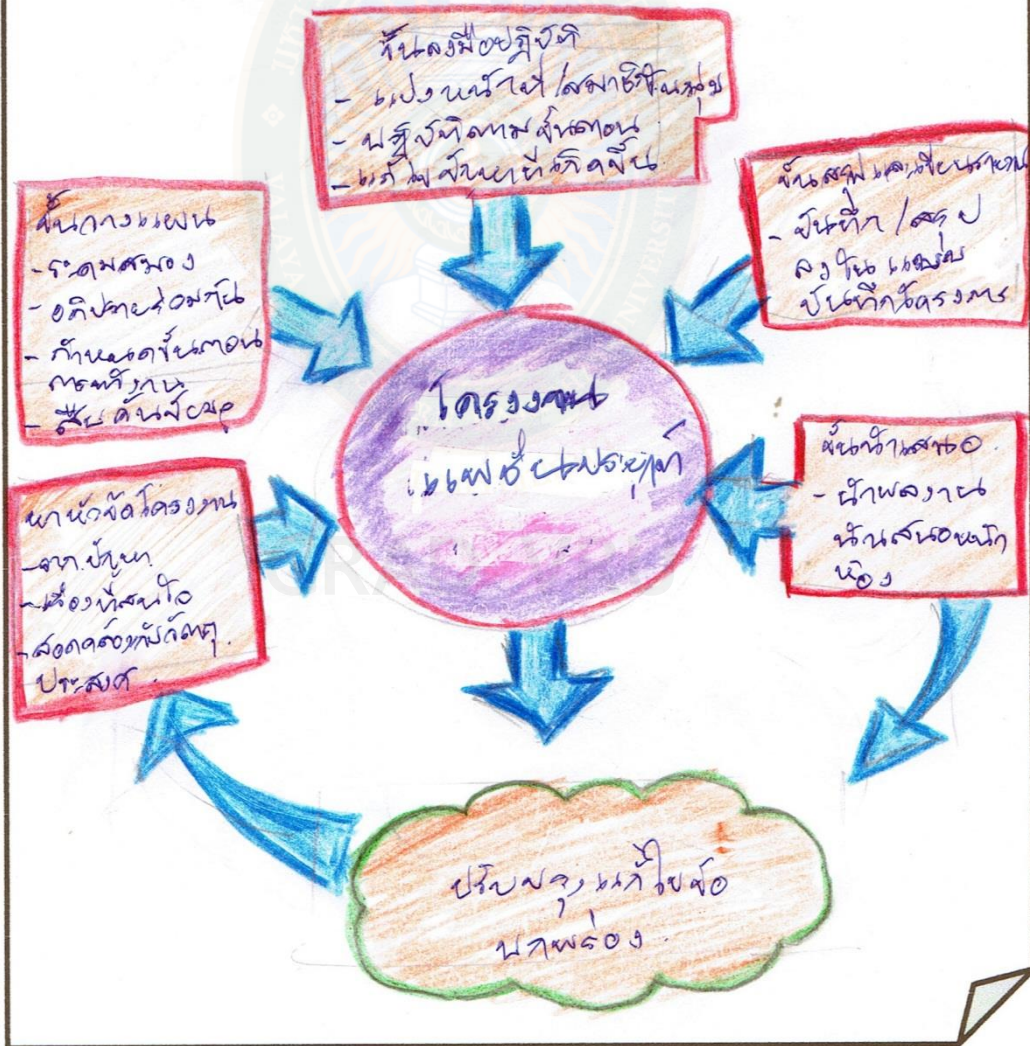 ขั้นลงมือปฏิบัติ
- แบ่งหน้าที่/สมาชิกในกลุ่ม
- ปฏิบัติตามขั้นตอน
- แก้ไขปัญหาที่เกิดขึ้น
ขั้นวางแผน
- ระดมสมอง
- อภิปรายร่วมกัน
- กำหนดขั้นตอน
การทำงาน
- สืบค้นข้อมูล
ขั้นสรุปและเขียนรายงาน
- บันทึก/สรุป
ลงในแบบ
บันทึกโครงการ
โครงงาน
แฟชั่นประยุกต์
ขั้นนำเสนอ
- นำผลงาน
นำเสนอหน้า
ห้อง
หาหัวข้อโครงงาน
- จากปัญหา
- เรื่องที่สนใจ
- สอดคล้องกับวัตถุ
ประสงค์
ปรับปรุงแก้ไขข้อ
บกพร่อง